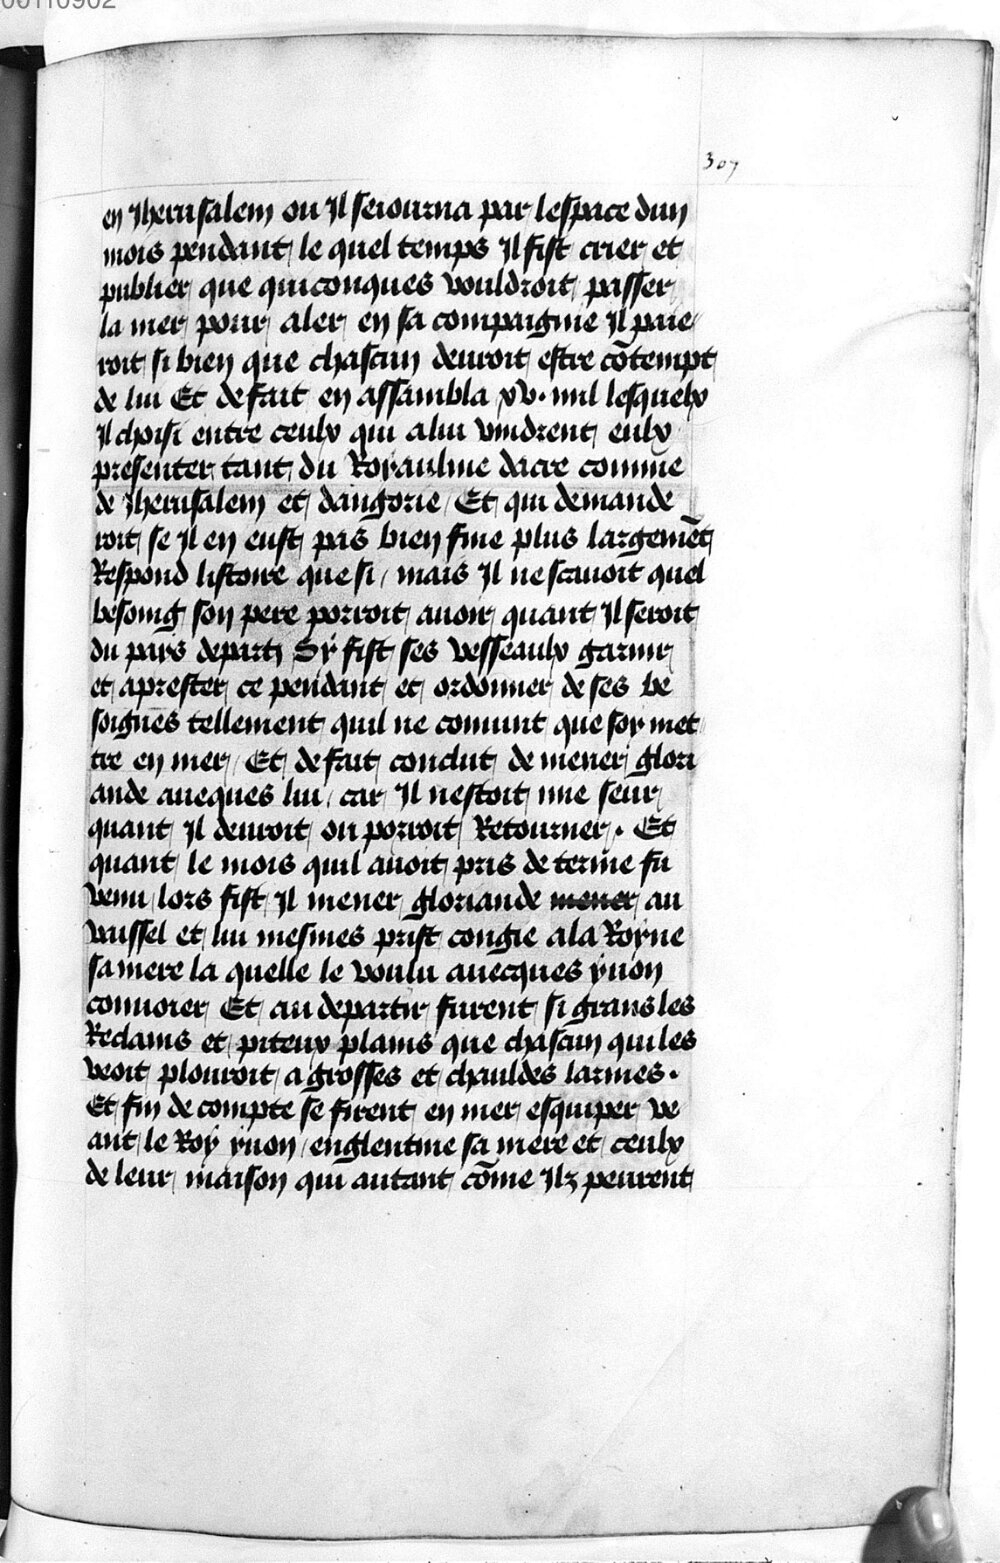 00110902
307
en Jherusalem ou Il seiourna par lespace dun
mois pendant le quel temps Il fist crier et
publier que quiconques vouldroit passer
la mer pour aler en sa compaignie Il paie
roit si bien que chascun deuroit estre cōtempt
de lui Et de fait en assambla xv. mil lesquelx
Il choisi entre ceulx qui a lui vindrent eulx
presenter tant du Royaulme dacre comme
de Jherusalem et dangorie / Et qui demande
roit se Il en eust pas bien fine plus largemēt
Respond listoire que si / mais Il ne scauoit quel
besoing son pere porroit auoir quant Il seroit
du pays departi Sy fist ses vesseaulx garnir
et aprester ce pendant et ordonner de ses be
soignes tellement quil ne conuint que soy met
tre en mer / Et de fait conclut de mener glori
ande auecques lui / car Il nestoit mie seur
quant Il deuroit ou porroit Retourner . Et
quant le mois quil auoit pris de terme fu
venu lors fist Il mener gloriande mener au
vaissel et lui mesmes prist congie a la Royne
sa mere la quelle le voulu auecques yuon
conuoier Et au departir furent si grans les
Reclams et piteux plains que chascun qui les
veoit plouroit a grosses et chauldes larmes .
Et fin de compte se firent en mer esquiper ve
ant le Roy yuon / englentine sa mere et ceulx
de leur maison qui autant cōme Ilz peurent